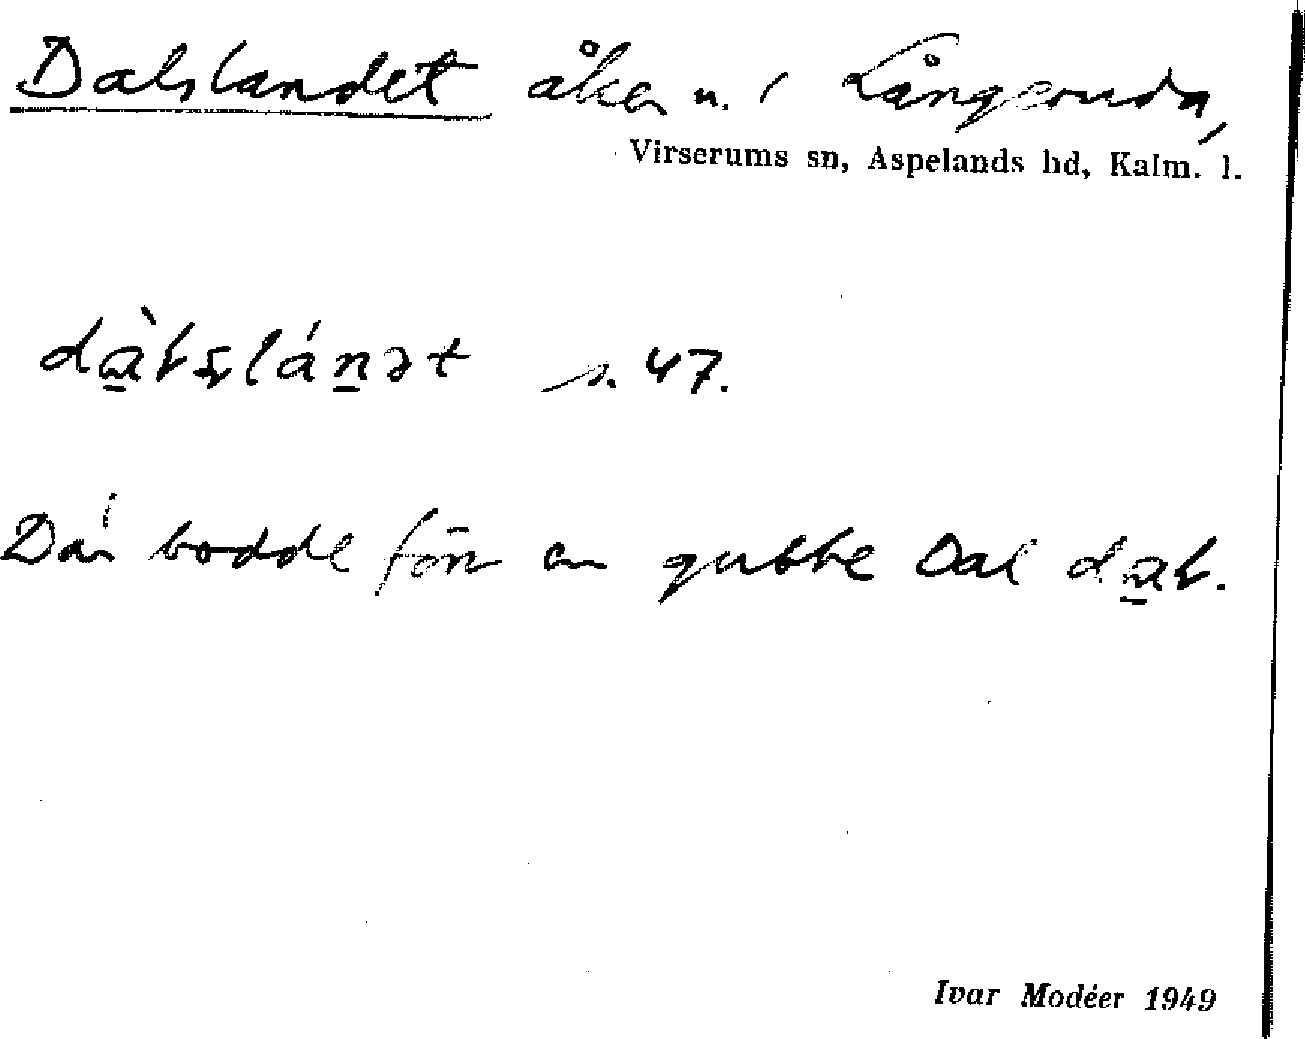 Dalslandet åker n. i Långeruda,
Virserums sn, Aspelands hd, Kalm. l.
dà̱ɫsláṉət s. 47.
Där bodde förr en gubbe Dal da̱ɫ.
Ivar Modéer 1949